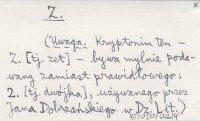 x
Z.
(Uwaga: Kryptonim ten –
Z. [tj. zet] – bywa mylnie poda-
wany zamiast prawidłowego:
2. [tj. dwójka], używanego przez
Jana Dobrzańskiego w Dz. L(t.)